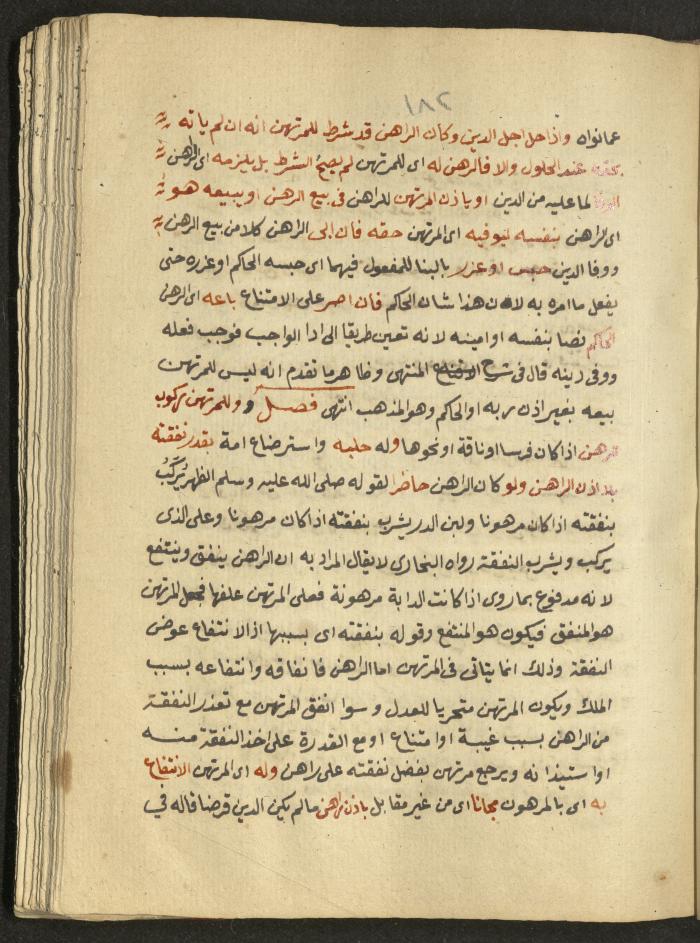 ١٨٢
عما نواه واذا حل اجل الدين وكان الراهن قد شرط للمرتهن انه ان لم ياته
بحقه عند الحلول والا فالرهن له اى للمرتهن لم يصح الشرط بل يلزمه اى الراهن
الوفا لما عليه من الدين او ياذن المرتهن للراهن فى بيع الرهن او يبيعه هو
اى الراهن بنفسه ليوفيه اى المرتهن حقه فان ابى الراهن كلا من بيع الرهن
ووفا الدين حبس او عزر بالبنا للمفعول فيهما اى حبسه الحاكم او عزره حتى
يفعل ما امره به لان هذا شان الحاكم فان اصر على الامتناع باعه اى الرهن
الحاكم نصا بنفسه او امينه لانه تعين طريقا الى ادا الواجب فوجب فعله
ووفى دينه قال فى شرح المنتهى وظاهر ما تقدم انه ليس للمرتهن
بيعه بغير اذن ربه او الحاكم وهو المذهب انتهى فصل وللمرتهن ركوب
الرهن اذا كان فرسا او ناقة او نحوها وله حلبه واسترضاع امة بقدر نفقته
بلا اذن الراهن ولو كان الراهن حاضرا لقوله صلى الله عليه وسلم الظهر يُركَبُ
بنفقته اذا كان مرهونا ولبن الدر يشرب بنفقته اذا كان مرهونا وعلى الذى
يركب ويشرب النفقة رواه البخارى لا يقال المراد به ان الراهن ينفق وينتفع
لانه مدفوع بما روى اذا كانت الدابة مرهونة فعلى المرتهن علفها فجعل المرتهن
هو المنفق فيكون هو المنتفع وقوله بنفقته اى بسببها اذ الانتفاع عوض
النفقة وذلك انما يتاتى فى المرتهن اما الراهن فانفاقه وانتفاعه بسبب
الملك ويكون المرتهن متحريا للعدل وسوا انفق المرتهن مع تعذر النفقة
من الراهن بسبب غيبة او امتناع او مع القدرة على اخذ النفقة منه
او استيذانه ويرجع مرتهن بفضل نفقته على راهن وله اى المرتهن الانتفاع
به اى بالمرهون مجانا اى من غير مقابل باذن راهن ما لم يكن الدين قرضا قاله فى